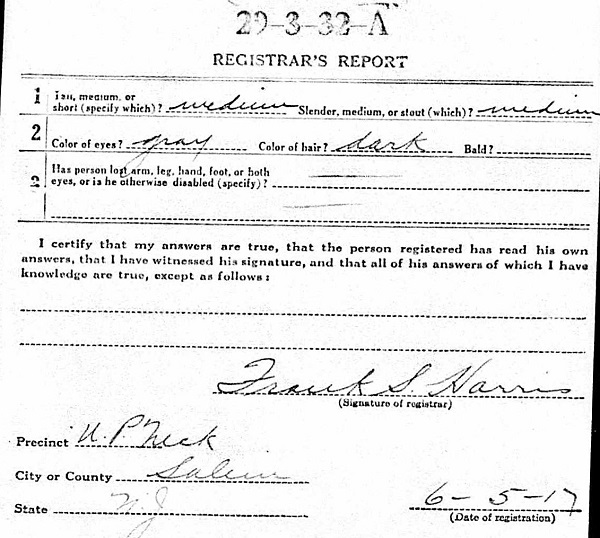 29-3-32-A
REGISTRAR'S REPORT
1 Tall, medium, or short (specify which)? medium Slender, medium, or stout (which)? medium
2 Color of eyes? gray Color of hair? dark Bald?
3 Has person lost arm, leg, hand, foot, or both eyes, or is he otherwise disabled (specify)?
I certify that my answers are true, that the person registered has read his own
answers, that I have witnessed his signature, and that all of his answers of which I have
knowledge are true, except as follows:
Frank S. Harris
(Signature of registrar)
Precinct U. P. Neck
City or County Salem
State N.J
6-5-17
(Date of registration)